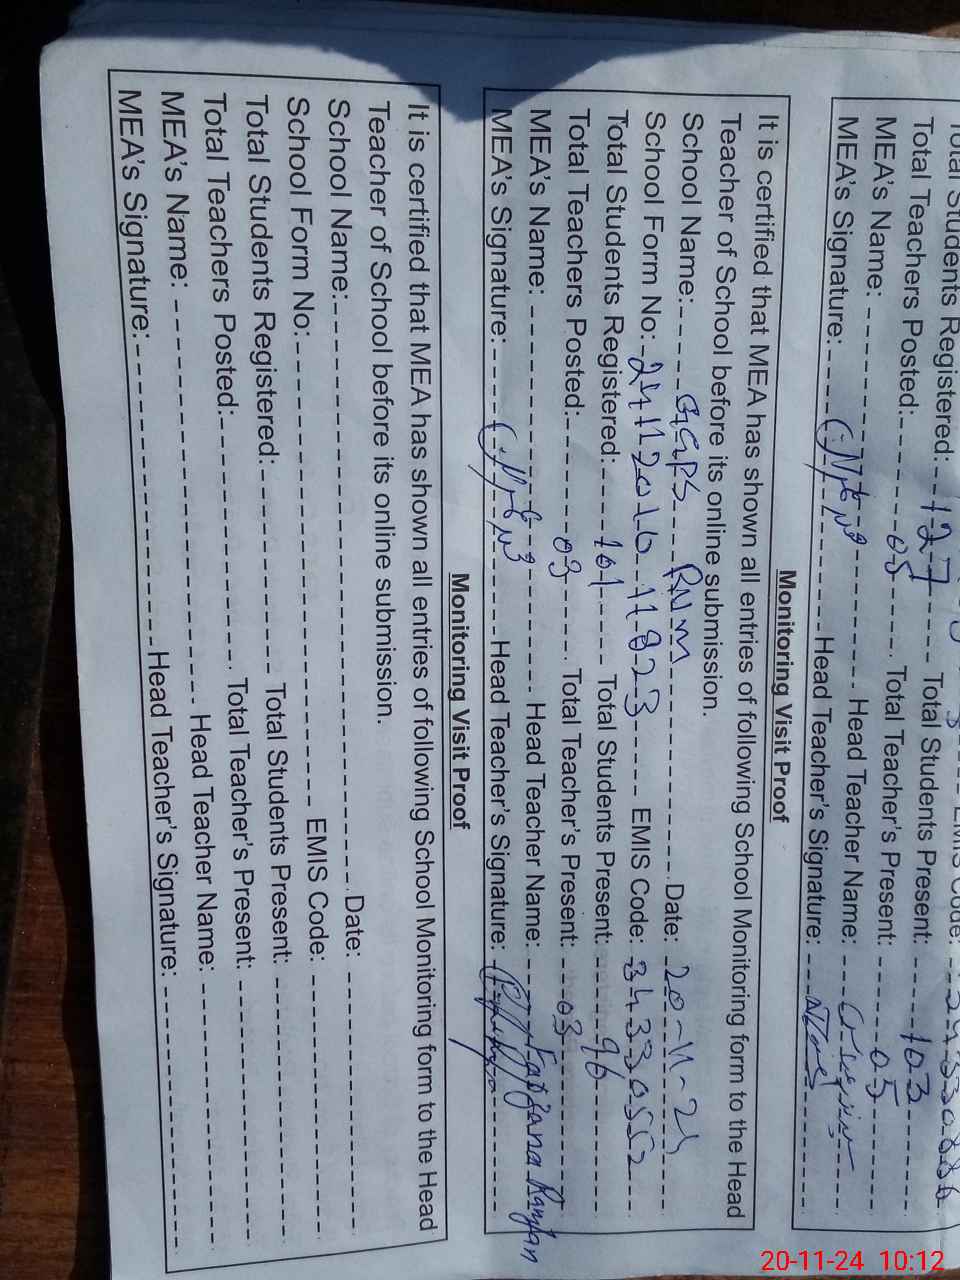 Total Students Registered: 127 Total Students Present: 103
Total Teachers Posted: 05 Total Teacher's Present: 05
MEA's Name: Head Teacher Name:
MEA's Signature: Head Teacher's Signature:
Monitoring Visit Proof
It is certified that MEA has shown all entries of following School Monitoring form to the Head
Teacher of School before its online submission.
School Name: GGPS RNM Date: 20-11-24
School Form No: EMIS Code: 34330552
Total Students Registered: 101 Total Students Present: 96
Total Teachers Posted: 03 Total Teacher's Present: 03
MEA's Name: Head Teacher Name: Farzana Ramzan
MEA's Signature: Head Teacher's Signature:
Monitoring Visit Proof
It is certified that MEA has shown all entries of following School Monitoring form to the Head
Teacher of School before its online submission.
School Name: Date:
School Form No: EMIS Code:
Total Students Registered: Total Students Present:
Total Teachers Posted: Total Teacher's Present:
MEA's Name: Head Teacher Name:
MEA's Signature: Head Teacher's Signature:
20-11-24 10:12